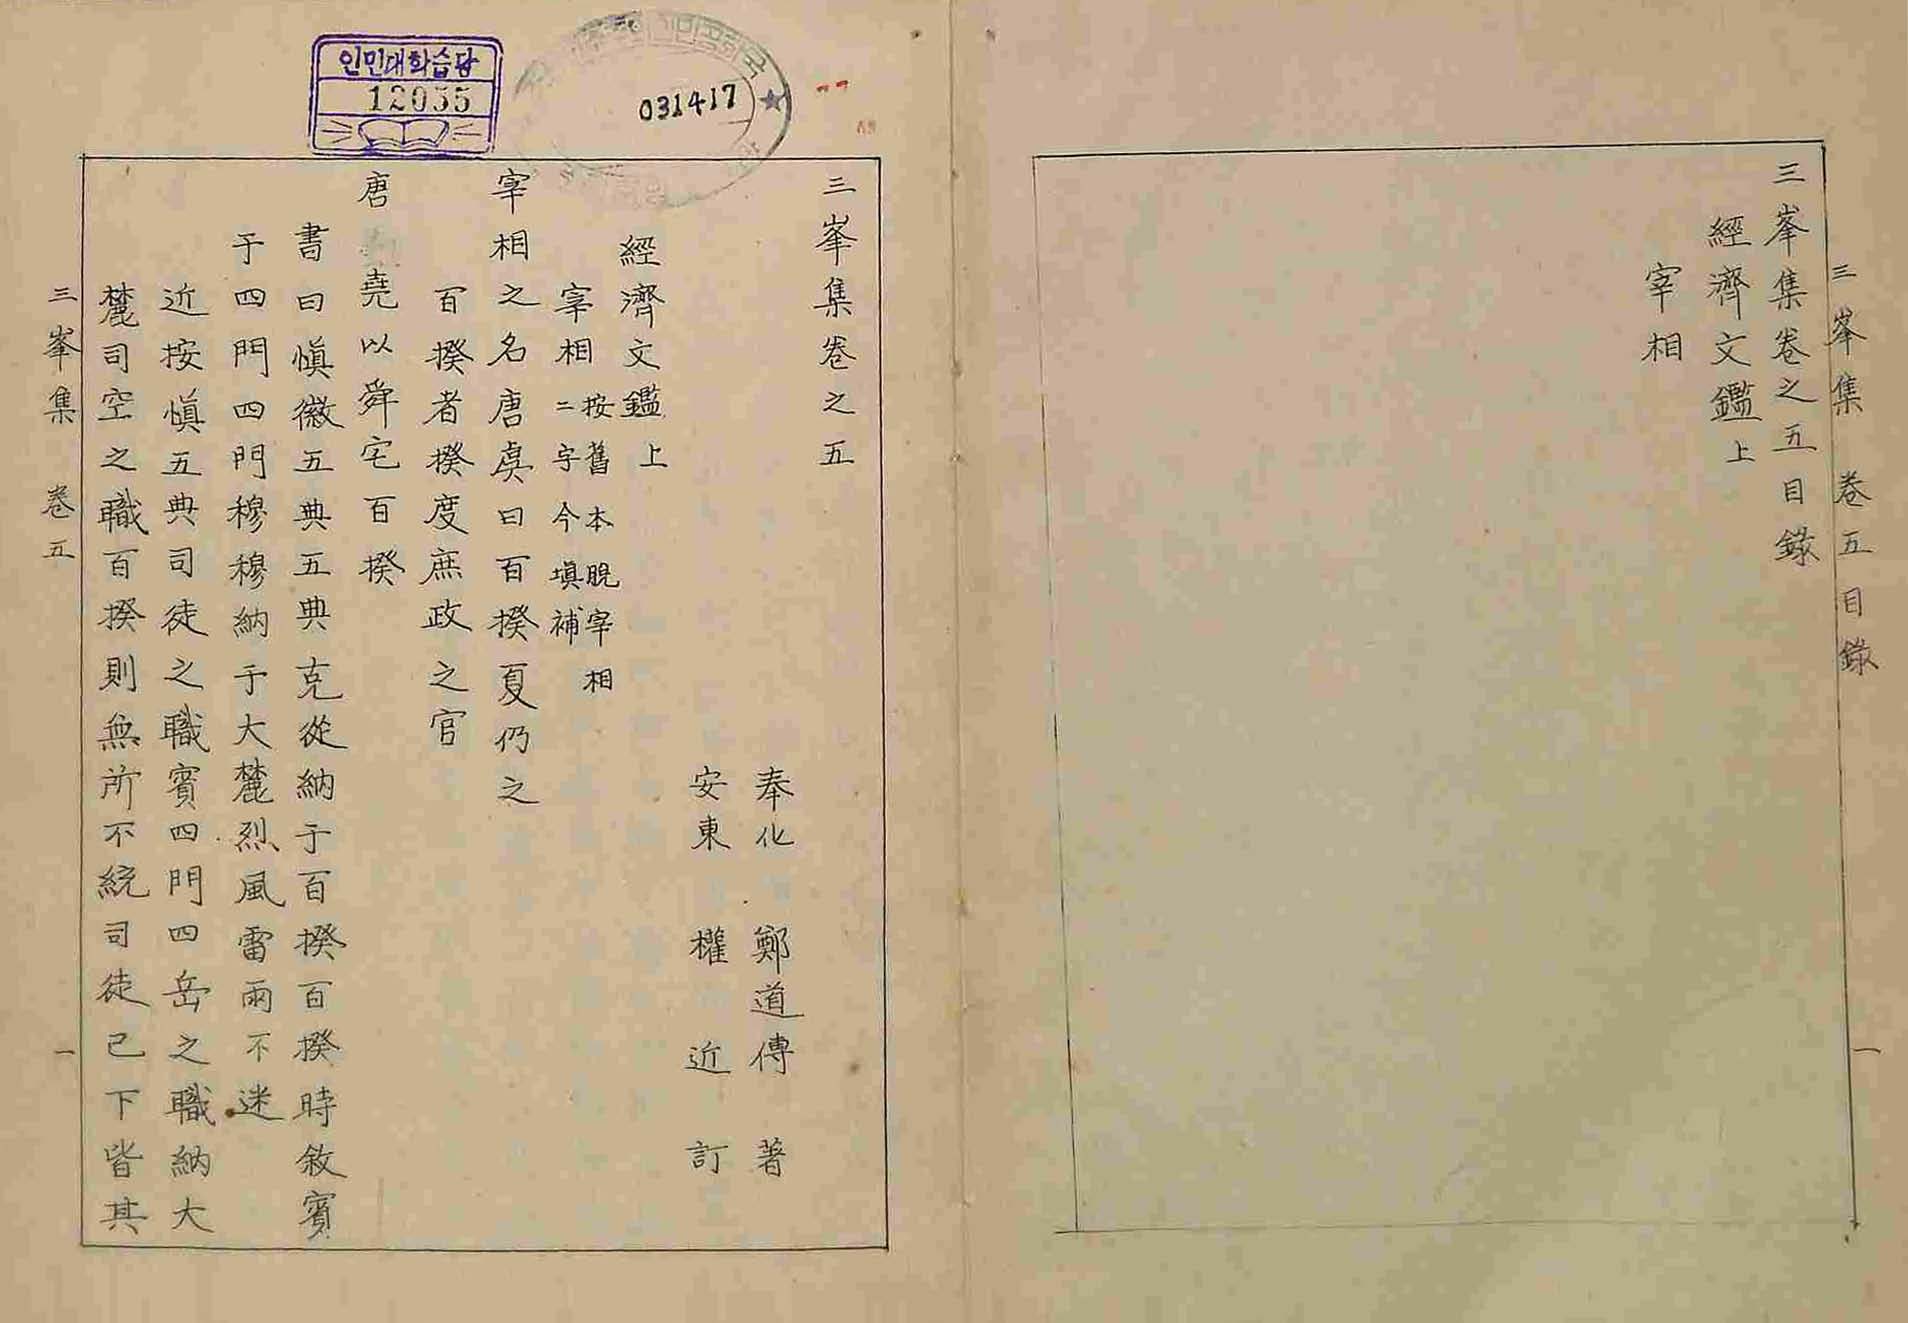 三峯集 卷五目錄 一
三峯集卷之五目錄
經濟文鑑上
宰相
인민대학습당
12055
031417
三峯集卷之五
奉化 鄭道傳 著
安東 權近 訂
經濟文鑑上
宰相 按舊本脫宰相
二字今塡補
宰相之名唐虞曰百揆夏仍之
百揆者揆度庶政之官
唐 堯以舜宅百揆
書曰愼徽五典五典克從納于百揆百揆時敘賓
于四門四門穆穆納于大麓烈風雷雨不迷
近按愼五典司徒之職賓四門四岳之職納大
麓司空之職百揆則無所不統司徒已下皆其
三峯集 卷五 一